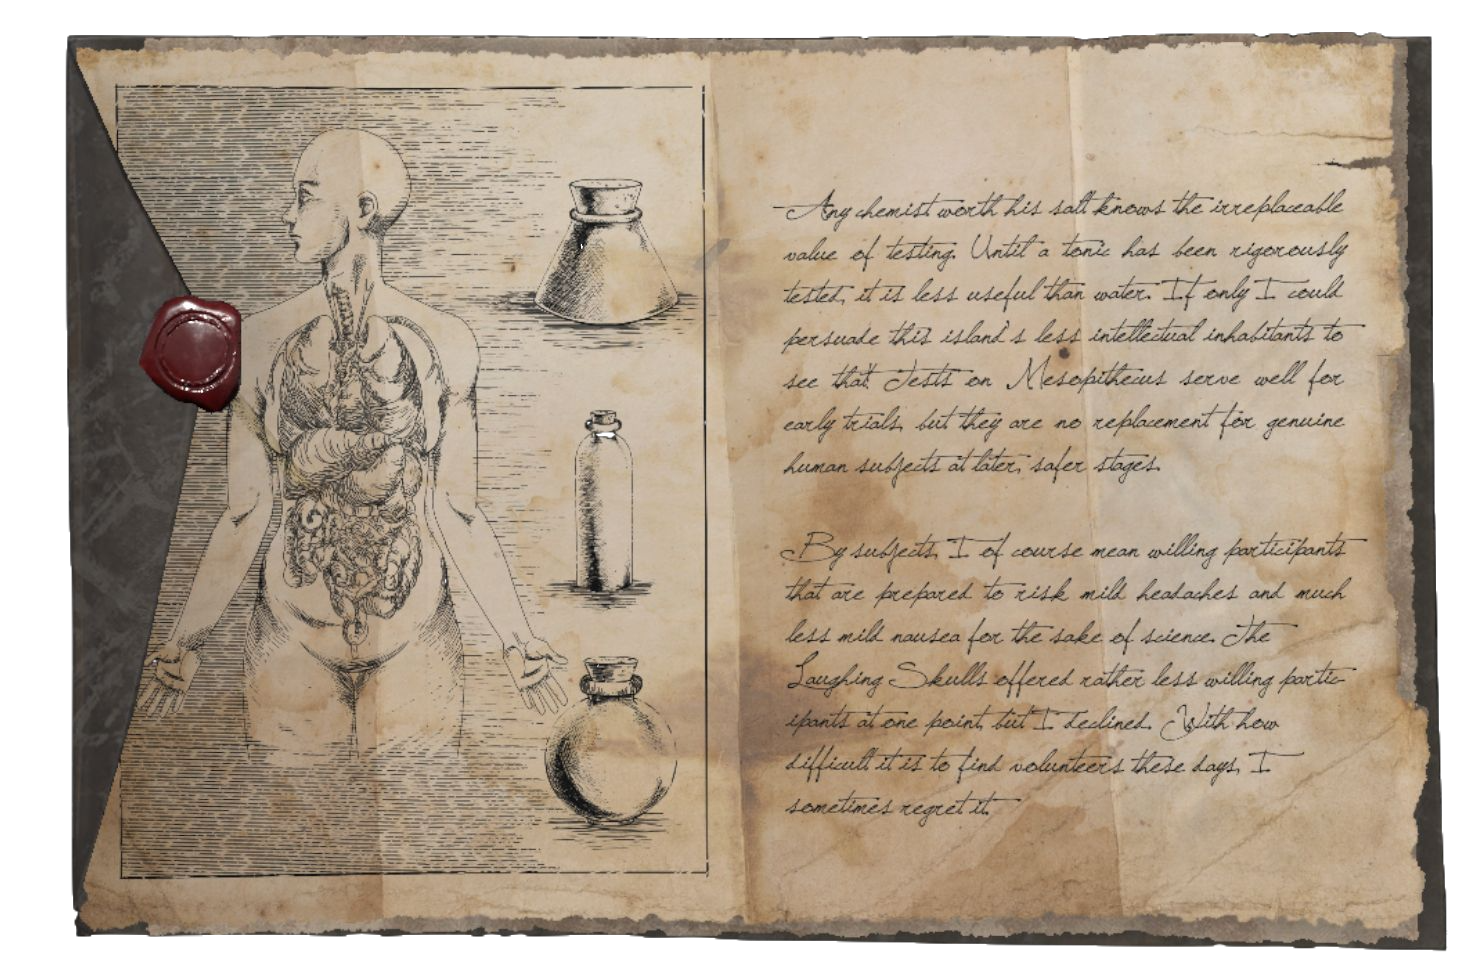 Any chemist worth his salt knows the irreplaceable
value of testing. Until a tonic has been rigorously
tested, it is less useful than water. If only I could
persuade this island's less intellectual inhabitants to
see that. Tests on Mesopithecus serve well for
early trials, but they are no replacement for genuine
human subjects at later, safer stages.
By subjects, I of course mean willing participants
that are prepared to risk mild headaches and much
less mild nausea for the sake of science. The
Laughing Skulls offered rather less willing partic-
ipants at one point, but I declined. With how
difficult it is to find volunteers these days, I
sometimes regret it.